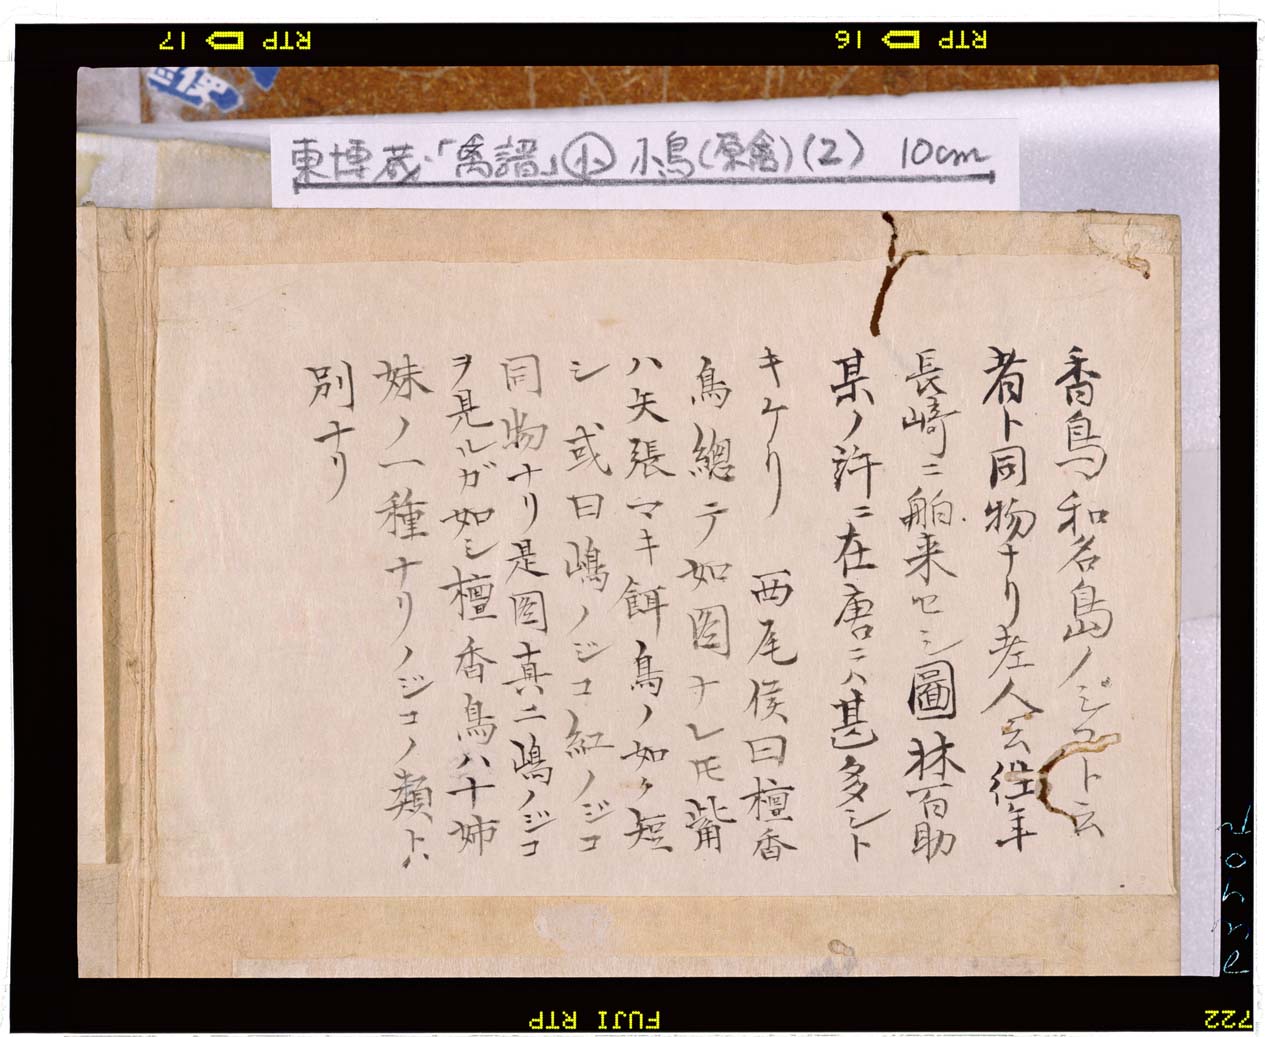 RTP 17
RTP 16
東博蔵「禽譜」小 小鳥(原禽)(2) 10cm
香鳥和名島ノジコト云
者ト同物ナリ老人云往年
長崎ニ舶来セシ圖林百助
某ノ許ニ在唐ニハ甚多シト
キケリ 西尾侯曰檀香
鳥總テ如图ナレ𪜈觜
ハ矢張マキ餌鳥ノ如ク短
シ或曰嶋ノジコ紅ノジコ
同物ナリ是图真ニ嶋ノジコ
ヲ見ルガ如シ檀香鳥ハ十姉
妹ノ一種ナリノジコノ類トハ
別ナリ
FUJI RTP
722